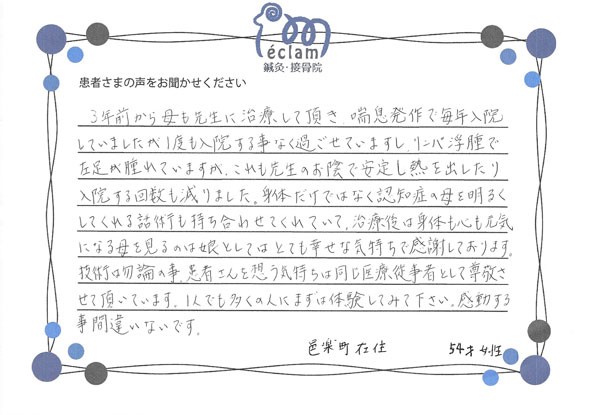 éclam
鍼灸・接骨院
患者さまの声をお聞かせください
3年前から母も先生に治療して頂き、喘息発作で毎年入院
していましたが1度も入院する事なく過ごせていますし、リンパ浮腫で
左足が腫れていますが、これも先生のお陰で安定し熱を出したり
入院する回数も減りました。身体だけではなく認知症の母を明るく
してくれる話術も持ち合わせてくれていて、治療後は身体も心も元気
になる母を見るのは娘としてはとても幸せな気持ちで感謝しております。
技術は勿論の事、患者さんを想う気持ちは同じ医療従事者として尊敬さ
せて頂いています。1人でも多くの人にまずは体験してみて下さい。感動する
事間違いないです。
邑楽町在住 54才女性